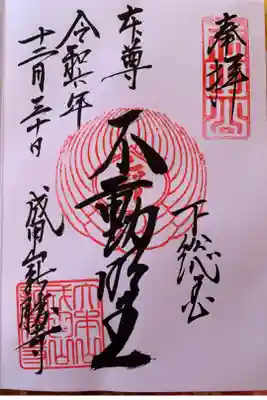 奉拝
下総国
不動明王
本尊
令和六年
十二月三十日
成田山新勝寺